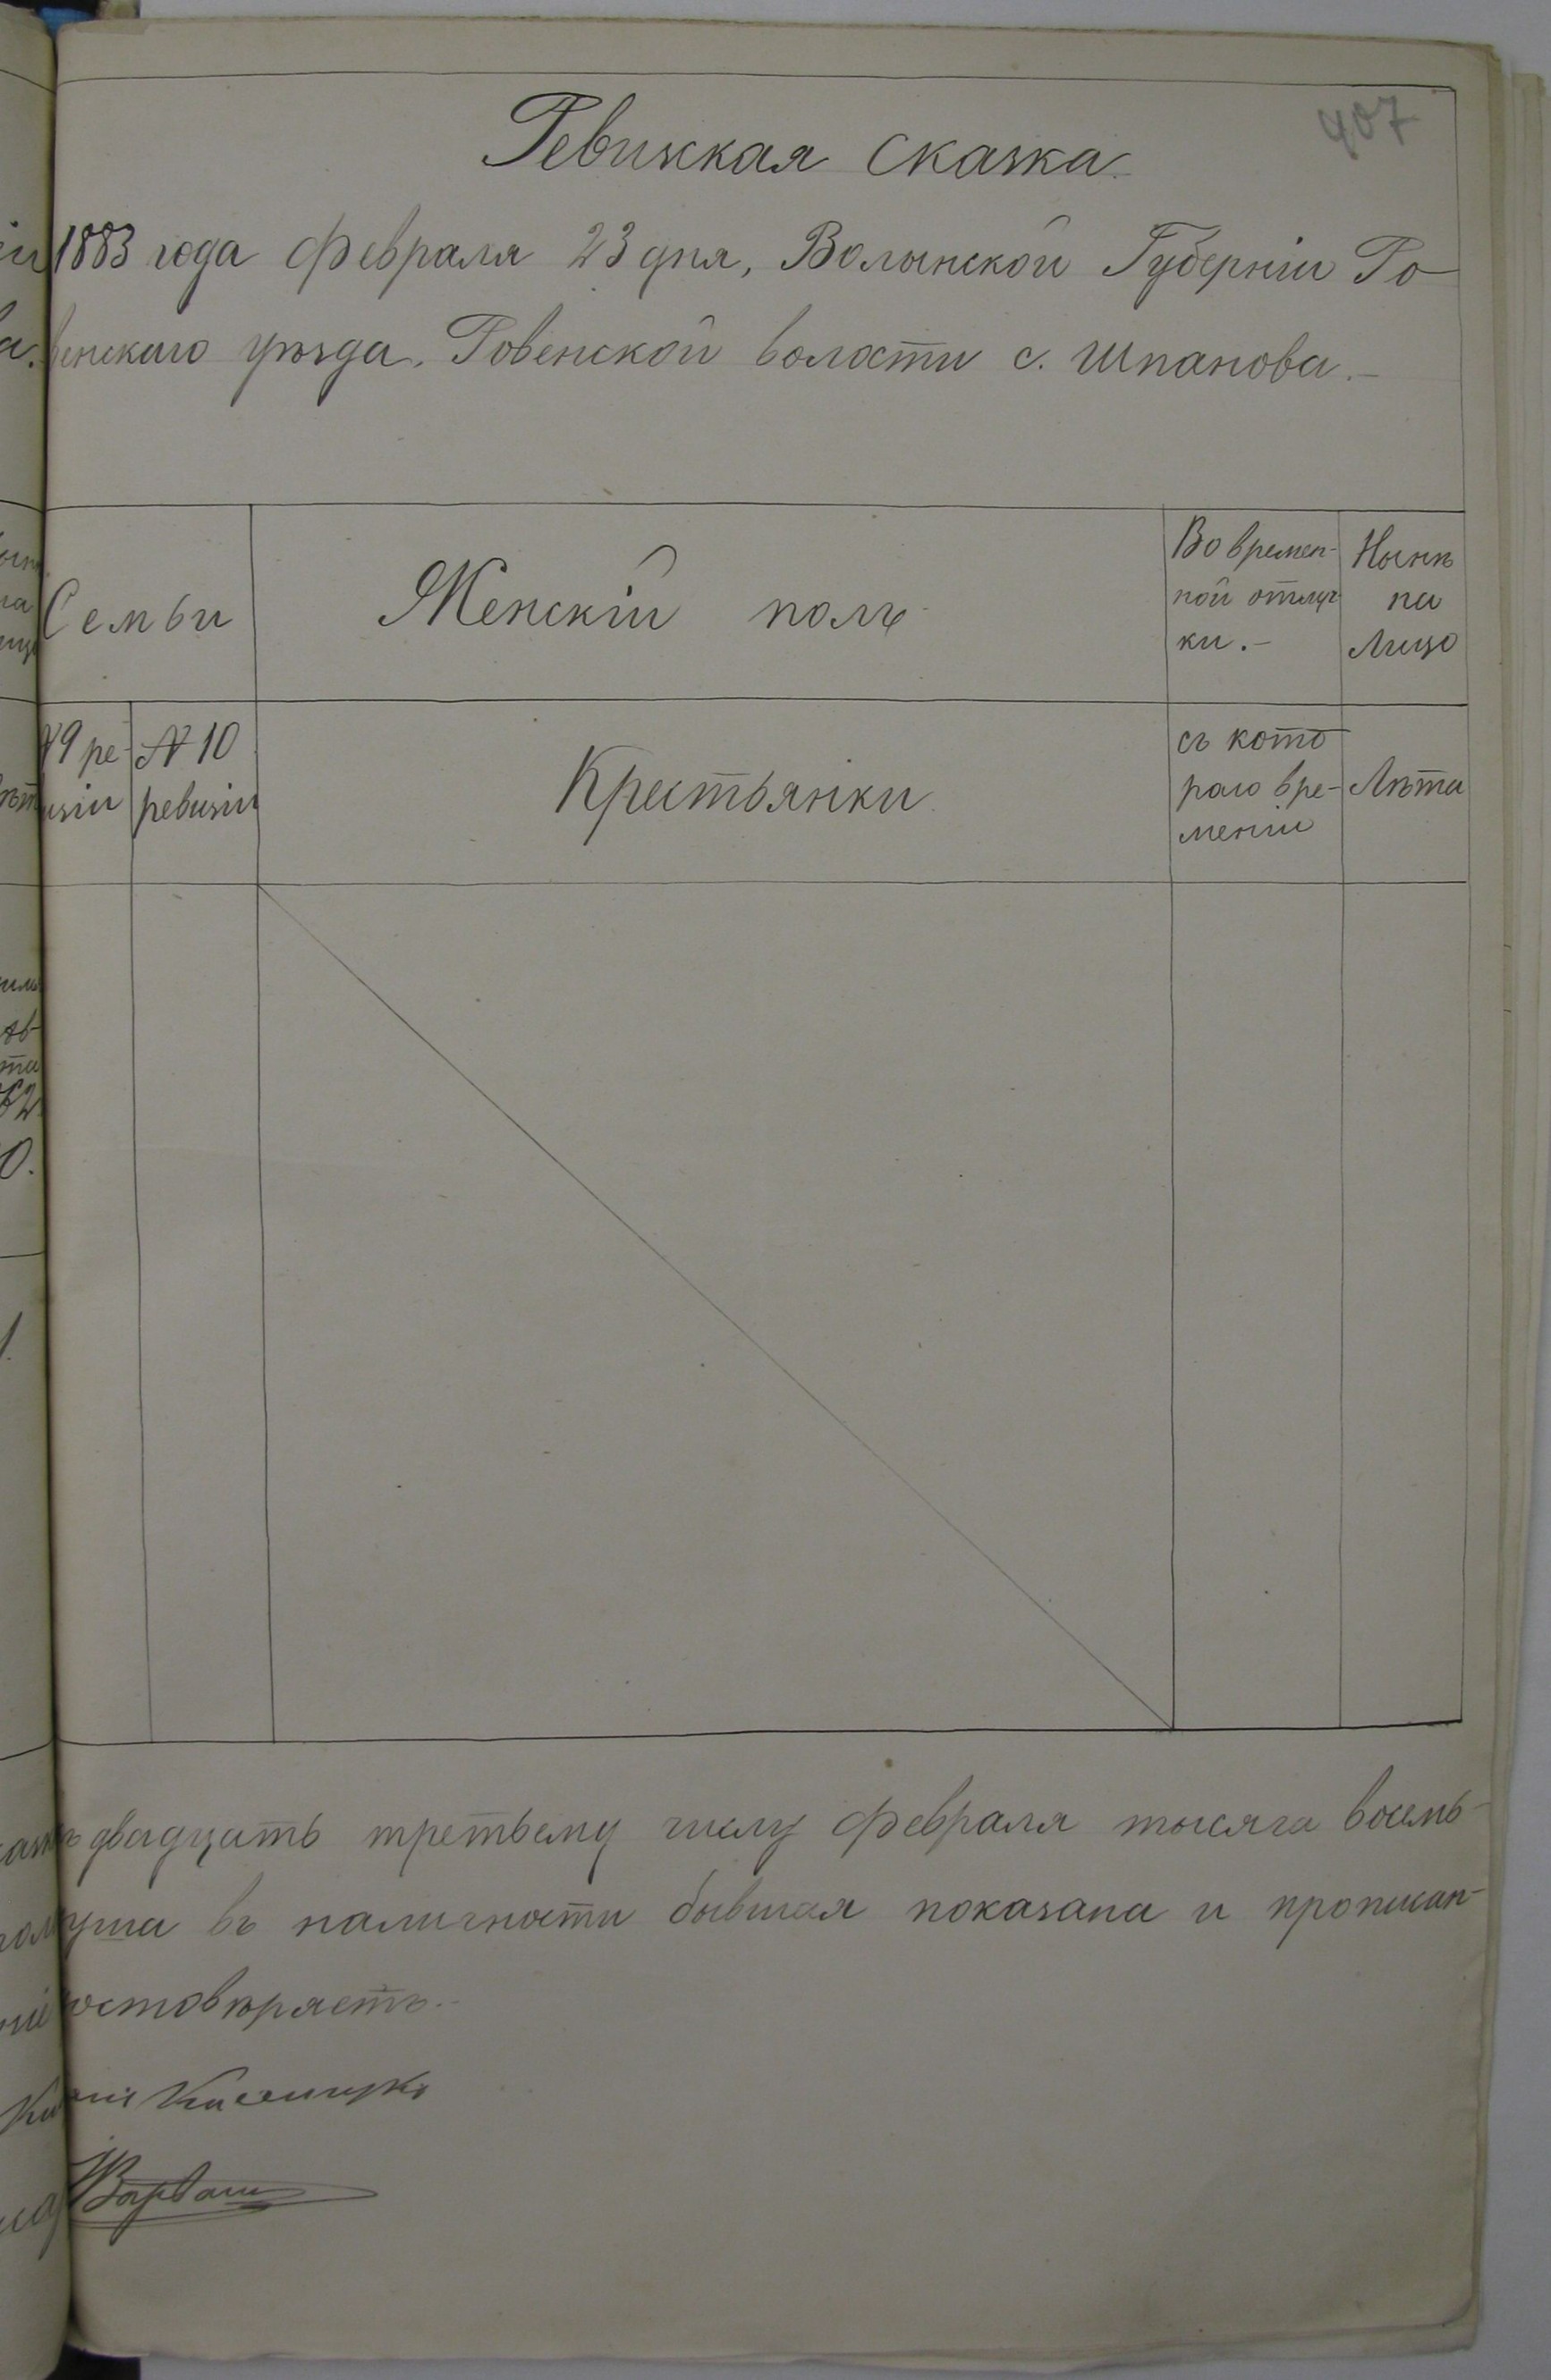 407
Ревизкая сказка.
1883 года февраля 23 дня, Волынской Губерніи Ро-
венскаго уѣзда. Ровенской волости с. Шпанова.-
Семьи
Женскій полъ
Во времен-
ной отлуч-
ки.-
Нынѣ
на
Лицо
№ 9 ре-
визіи
№ 10
ревизіи
Крестьянки
съ кото
раго вре-
мени
Лѣта
двадцать третьему числу февраля тысяча восемь-
въ наличности бывшая показана и прописан-